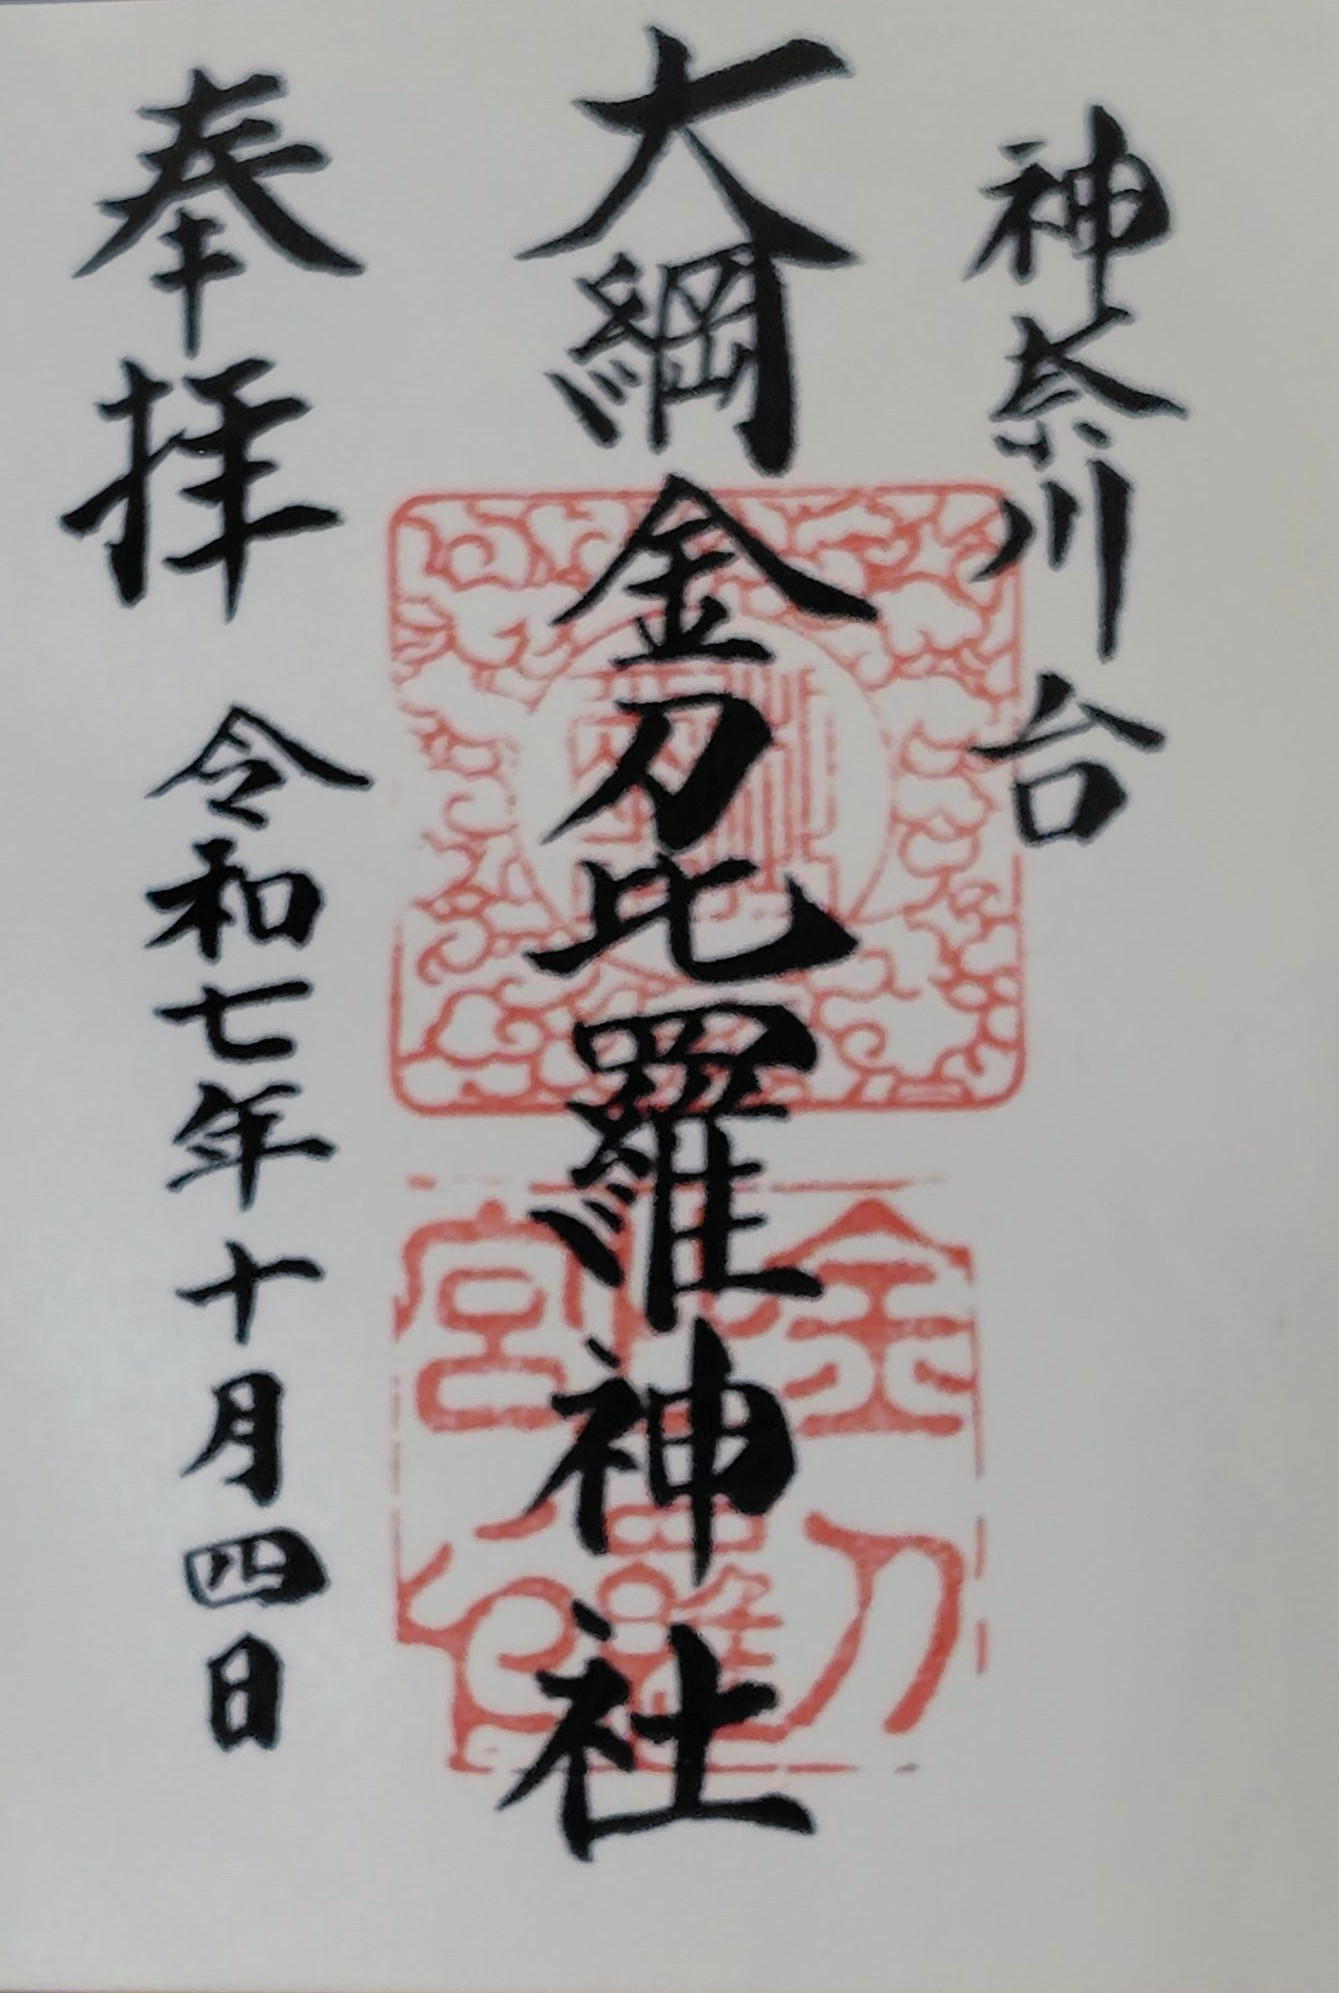 神奈川台
大綱金刀比羅神社
奉拝
令和七年十月四日
金刀
宮